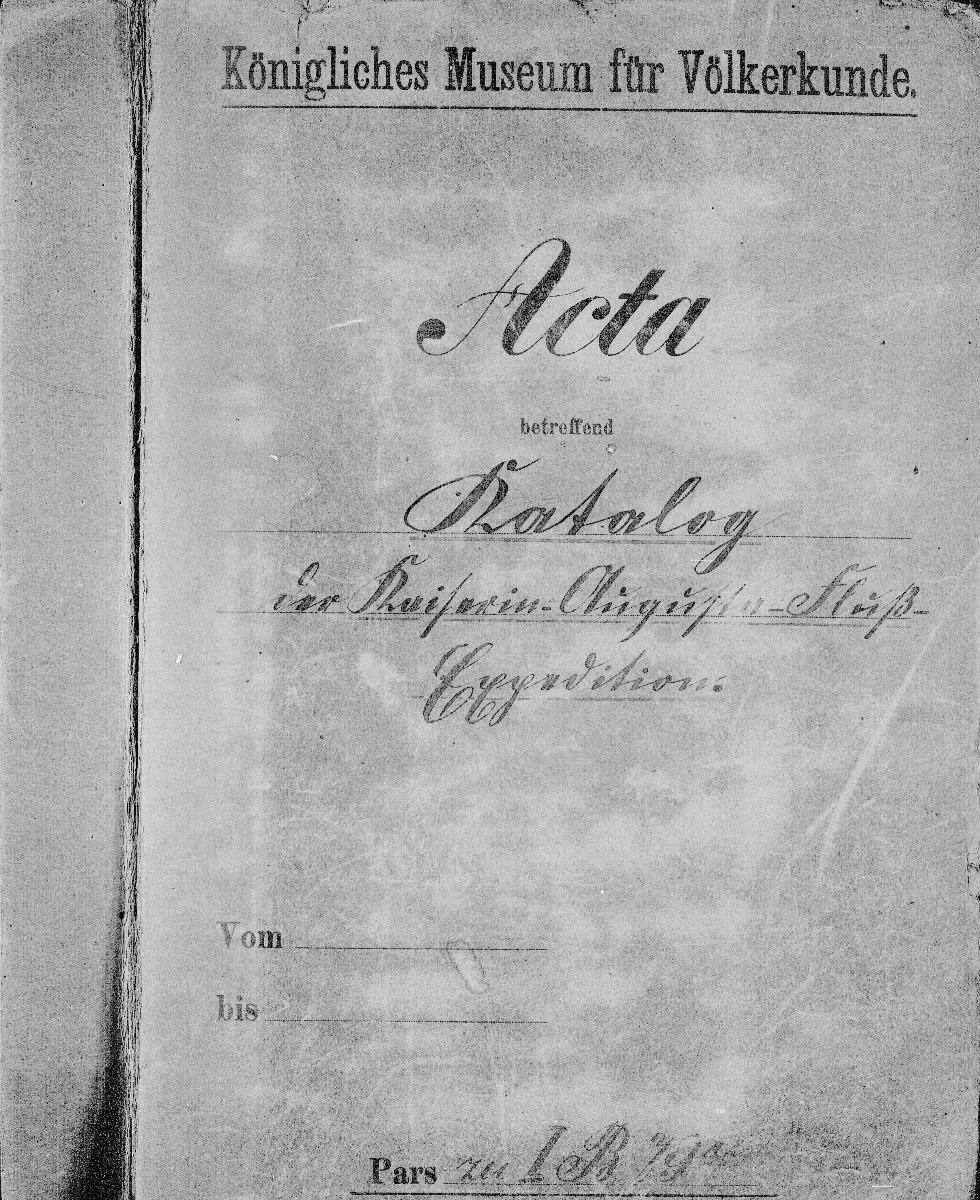 Königliches Museum für Völkerkunde.
Acta
betreffend
Katalog
der Kaiserin-Augusta-Fluß-
Expedition.
Vom
bis
Pars zu I B